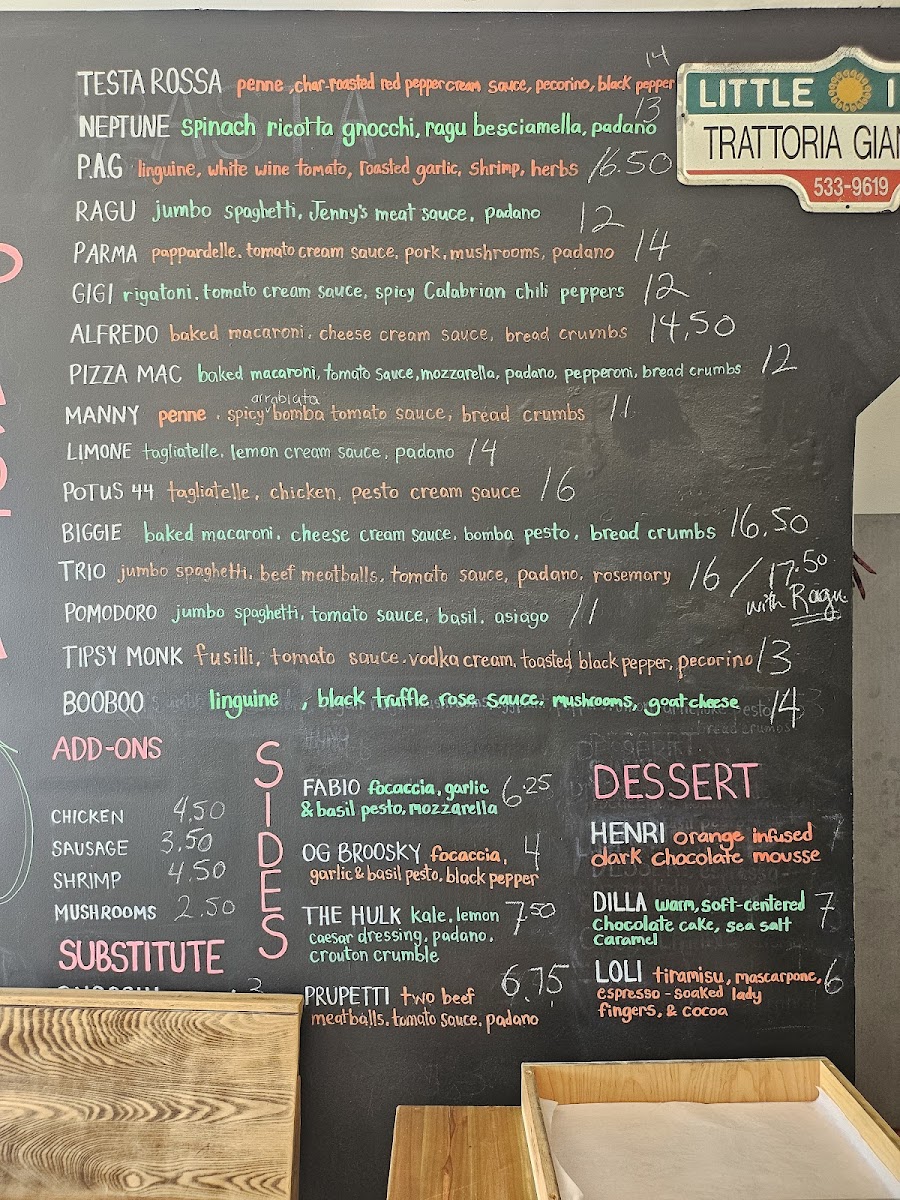 TESTA ROSSA penne, char-roasted red pepper cream sauce, pecorino, black pepper 14
NEPTUNE spinach ricotta gnocchi, ragu besciamella, padano 13
P.A.G linguine, white wine tomato, roasted garlic, shrimp, herbs 16.50
RAGU jumbo spaghetti, Jenny's meat sauce, padano 12
PARMA pappardelle, tomato cream sauce, pork, mushrooms, padano 14
GIGI rigatoni, tomato cream sauce, spicy Calabrian chili peppers 12
ALFREDO baked macaroni, cheese cream sauce, bread crumbs 14.50
PIZZA MAC baked macaroni, tomato sauce, mozzarella, padano, pepperoni, bread crumbs 12
MANNY penne, spicy arrabiata bomba tomato sauce, bread crumbs 11
LIMONE tagliatelle, lemon cream sauce, padano 14
POTUS 44 tagliatelle, chicken, pesto cream sauce 16
BIGGIE baked macaroni, cheese cream sauce, bomba pesto, bread crumbs 16.50
TRIO jumbo spaghetti, beef meatballs, tomato sauce, padano, rosemary 16 / 17.50
with Ragu
POMODORO jumbo spaghetti, tomato sauce, basil, asiago 11
TIPSY MONK fusilli, tomato sauce, vodka cream, toasted black pepper, pecorino 13
BOOBOO linguine, black truffle rose sauce, mushrooms, goat cheese 14
LITTLE I
TRATTORIA GIAN
533-9619
PASTA
ADD-ONS
CHICKEN 4.50
SAUSAGE 3.50
SHRIMP 4.50
MUSHROOMS 2.50
SUBSTITUTE
SIDES
FABIO focaccia, garlic 6.25
& basil pesto, mozzarella
OG BROOSKY focaccia, 4
garlic & basil pesto, black pepper
THE HULK kale, lemon 7.50
caesar dressing, padano,
crouton crumble
PRUPETTI two beef 6.75
meatballs, tomato sauce, padano
DESSERT
HENRI orange infused 7
dark chocolate mousse
DILLA warm, soft-centered 7
chocolate cake, sea salt
caramel
LOLI tiramisu, mascarpone, 6
espresso-soaked lady
fingers, & cocoa